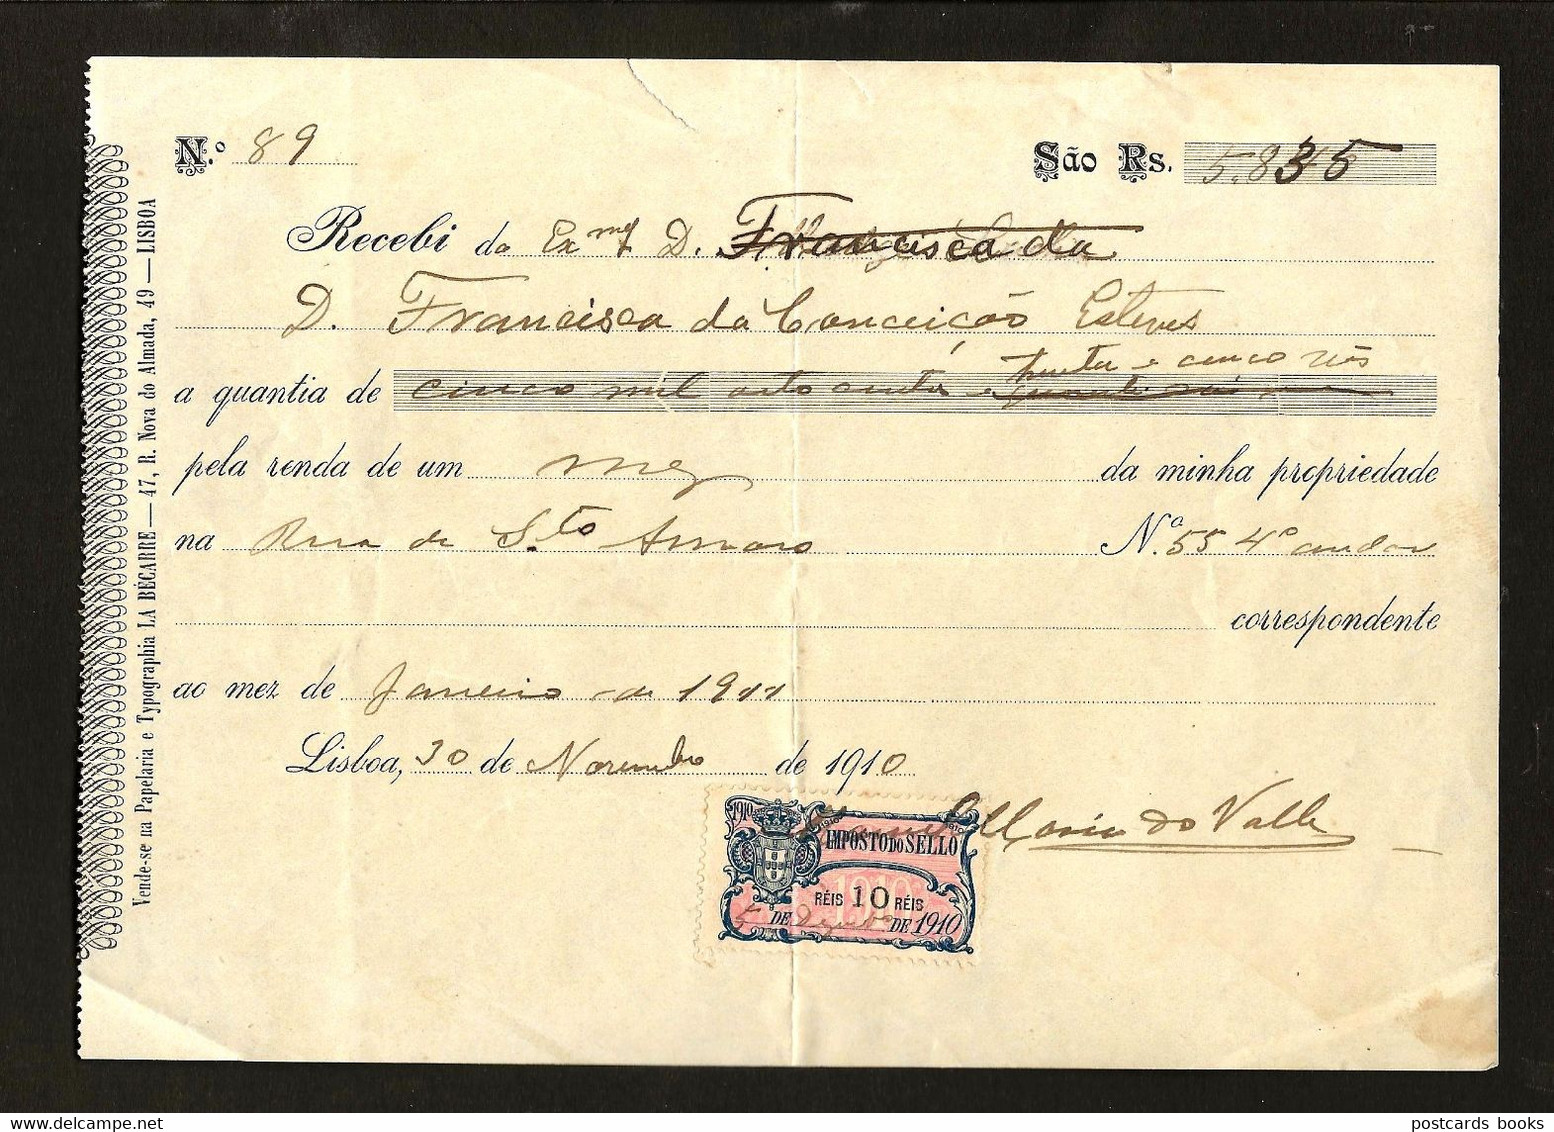 N.º 89 São Rs. 5.835
Recebi da Exmª D. Francisca da
D. Francisca da Conceição Esteves
trinta e cinco réis
a quantia de cinco mil oito centos e
pela renda de um mez da minha propriedade
na Rua de S.to Amaro N.º 55 4º andar
correspondente
ao mez de Janeiro de 1911
Lisboa, 30 de Novembro de 1910
Maria do Valle
1910
IMPOSTO DO SELLO
1910
RÉIS 10 RÉIS
5 DE Dezbro DE 1910
Vende-se na Papelaria e Typographia LA BÉCARRE — 47, R. Nova do Almada, 49 — LISBOA
postcards books